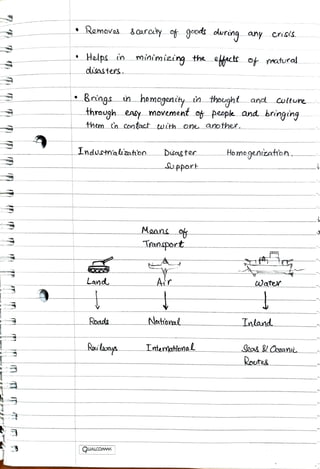 • Removes scarcity of goods during any crisis.
• Helps in minimizing the effects of natural
disasters.
• Brings in homogenity in thought and culture
through easy movement of people and bringing
them in contact with one another.
Industrialization Disaster Homogenization.
Support
Means of
Transport
Land Air Water
Roads National Inland
Railways International Seas & Oceanic
Routes
QUALCOMM